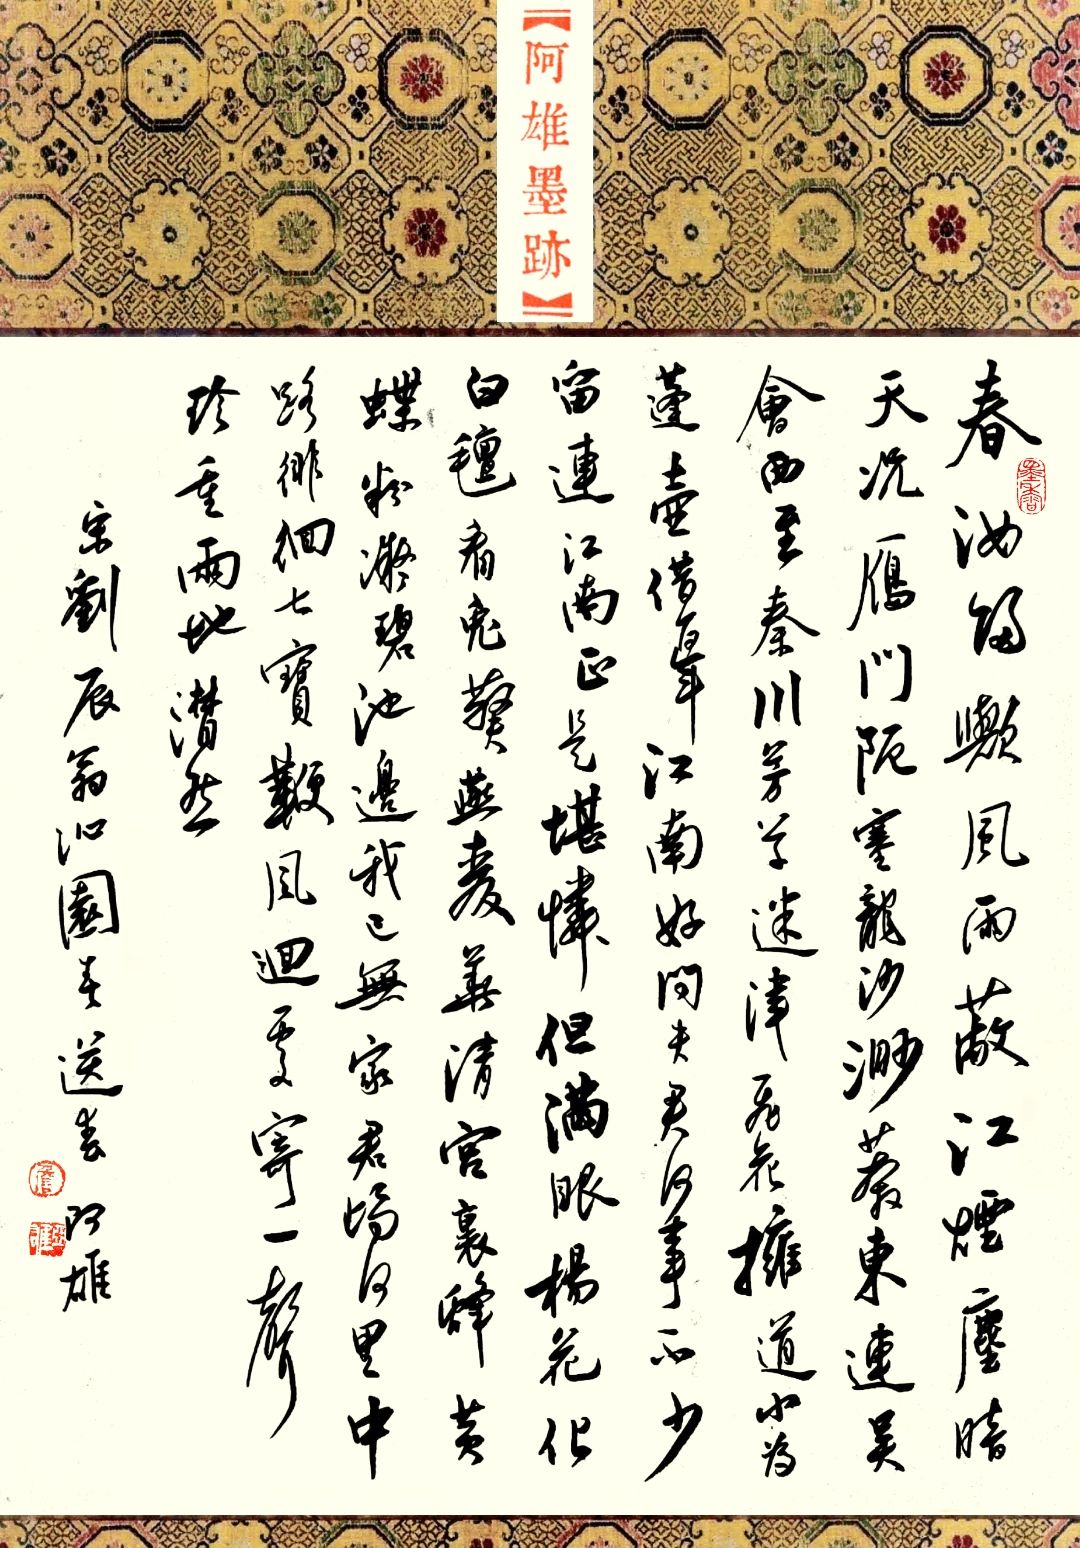 【阿雄墨跡】
春汝歸歟風雨蔽江煙塵暗
天況雁門阨塞龍沙渺莽東連吳
會西至秦川芳草迷津飛花擁道小為
蓬壺借百年江南好問夫君何事不少
留連江南正是堪憐但滿眼楊花化
白氊看兔葵燕麥華清宮裏蜂黃
蝶粉凝碧池邊我已無家君歸何里中
路徘徊七寶鞭風迴處寄一聲
珍重兩地潸然
宋劉辰翁沁園春送春 阿雄
墨香